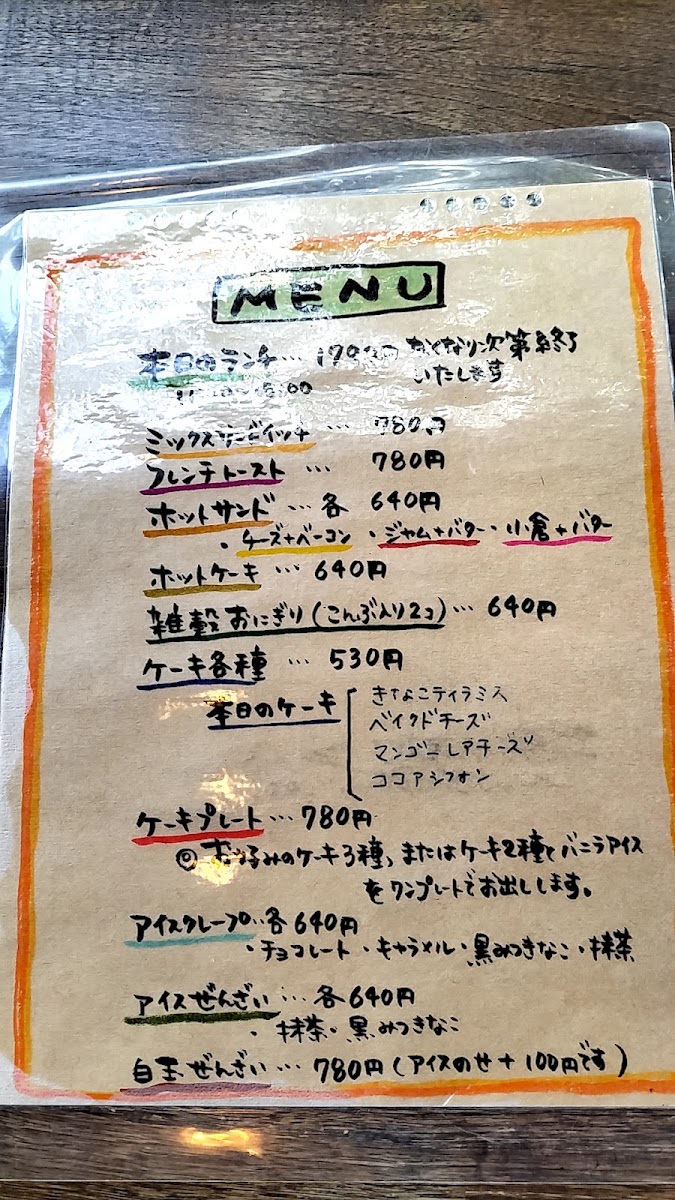 MENU
本日のランチ… なくなり次第終了
いたします
ミックスサンドイッチ … 780円
フレンチトースト … 780円
ホットサンド … 各 640円
・チーズ+ベーコン ・ジャム+バター・小倉+バター
ホットケーキ … 640円
雑穀おにぎり(こんぶ入り2コ)… 640円
ケーキ各種 … 530円
本日のケーキ
きなこティラミス
ベイクドチーズ
マンゴーレアチーズ
ココアシフォン
ケーキプレート … 780円
◎お好みのケーキ3種、またはケーキ2種とバニラアイス
をワンプレートでお出しします。
アイスクレープ…各640円
・チョコレート ・キャラメル・黒みつきなこ・抹茶
アイスぜんざい … 各640円
・抹茶・黒みつきなこ
白玉ぜんざい … 780円(アイスのせ+100円です)